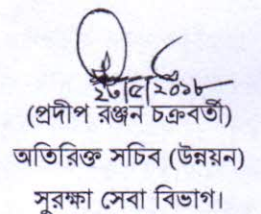 ২৩/৫/২০১৮
(প্রদীপ রঞ্জন চক্রবর্তী)
অতিরিক্ত সচিব (উন্নয়ন)
সুরক্ষা সেবা বিভাগ।